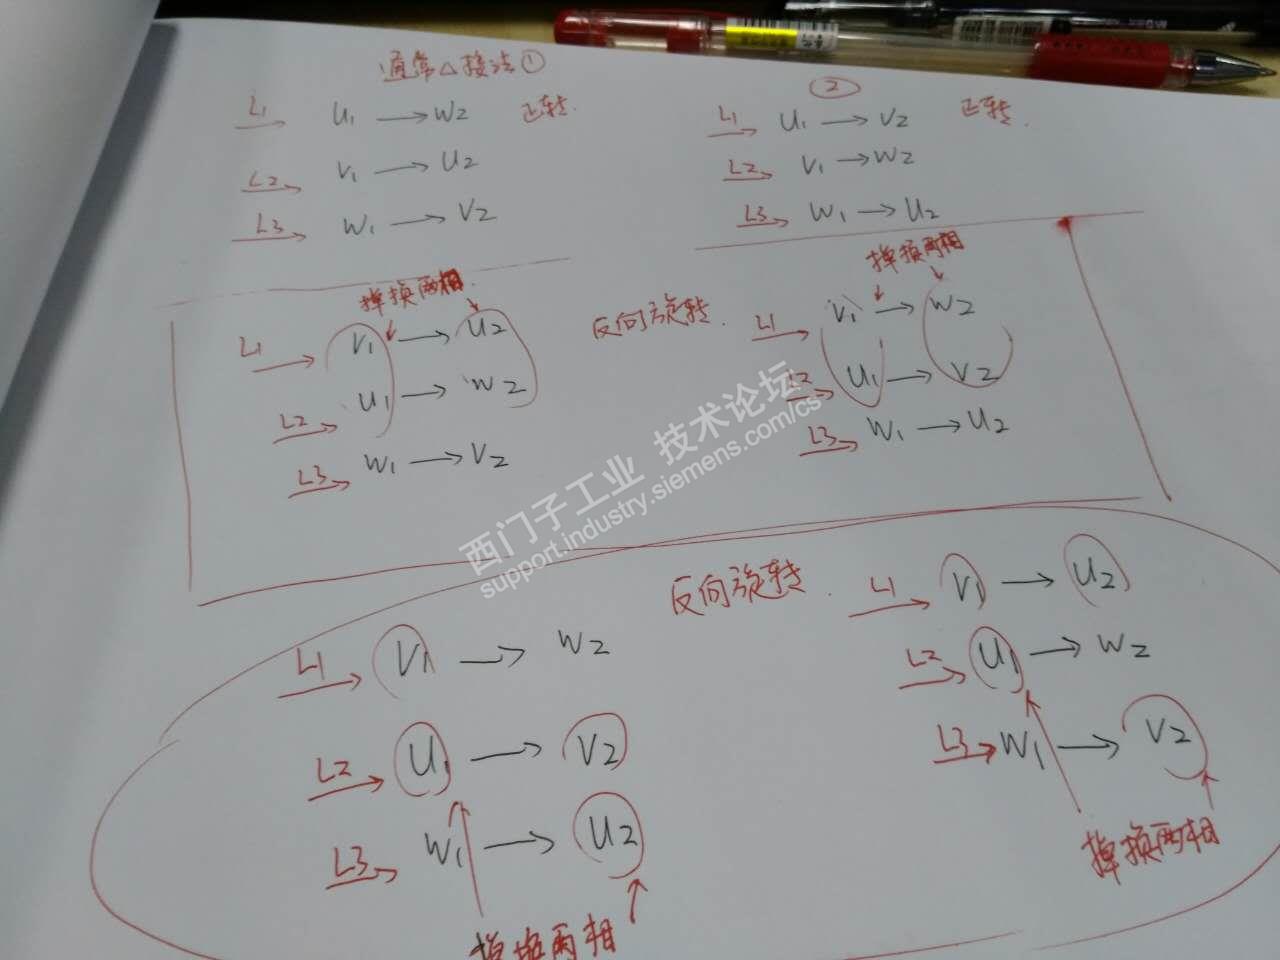 通常△接法①
L1 U1 → W2 正转
L2 V1 → U2
L3 W1 → V2
②
L1 U1 → V2 正转
L2 V1 → W2
L3 W1 → U2
掉换两相
L1 V1 → U2
L2 U1 → W2
L3 W1 → V2
反向旋转
掉换两相
L1 V1 → W2
L2 U1 → V2
L3 W1 → U2
西门子工业 技术论坛
support.industry.siemens.com/cs
反向旋转
L1 V1 → W2
L2 U1 → V2
L3 W1 → U2
掉换两相
L1 V1 → U2
L2 U1 → W2
L3 W1 → V2
掉换两相